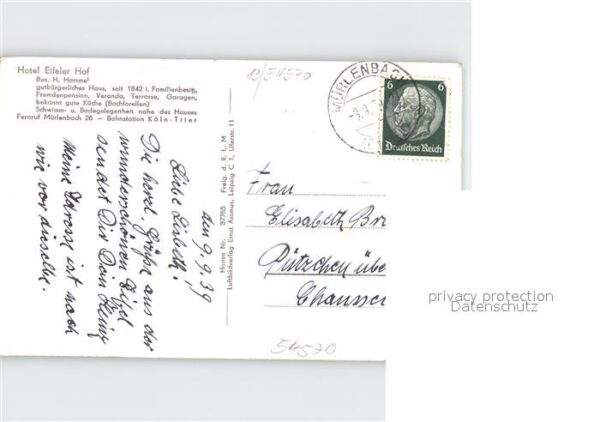 Hotel Eifeler Hof
Bes. H. Hammel
gutbürgerliches Haus, seit 1842 i. Familienbesitz,
Fremdenpension, Veranda, Terrasse, Garagen,
bekannt gute Küche (Bachforellen)
Schwimm- u. Badegelegenheit nahe des Hauses
Fernruf Mürlenbach 26 – Bahnstation Köln-Trier
den 9.9.39
Liebe Lisbeth!
Die herzl. Grüße aus der
wunderschönen Eifel
sendet Dir Dein Heinz
Meine Adresse ist noch
wie vor dieselbe.
Hansa Nr. 37765 Freig. d. R. L. M.
Luftbildverlag Ernst Leipzig C 1, Uferstr. 11
19/54570
MÜRLENBACH
6 6
Deutsches Reich
Frau
Elisabeth Br
Pützchen übe
Chaussee
54570
privacy protection
Datenschutz